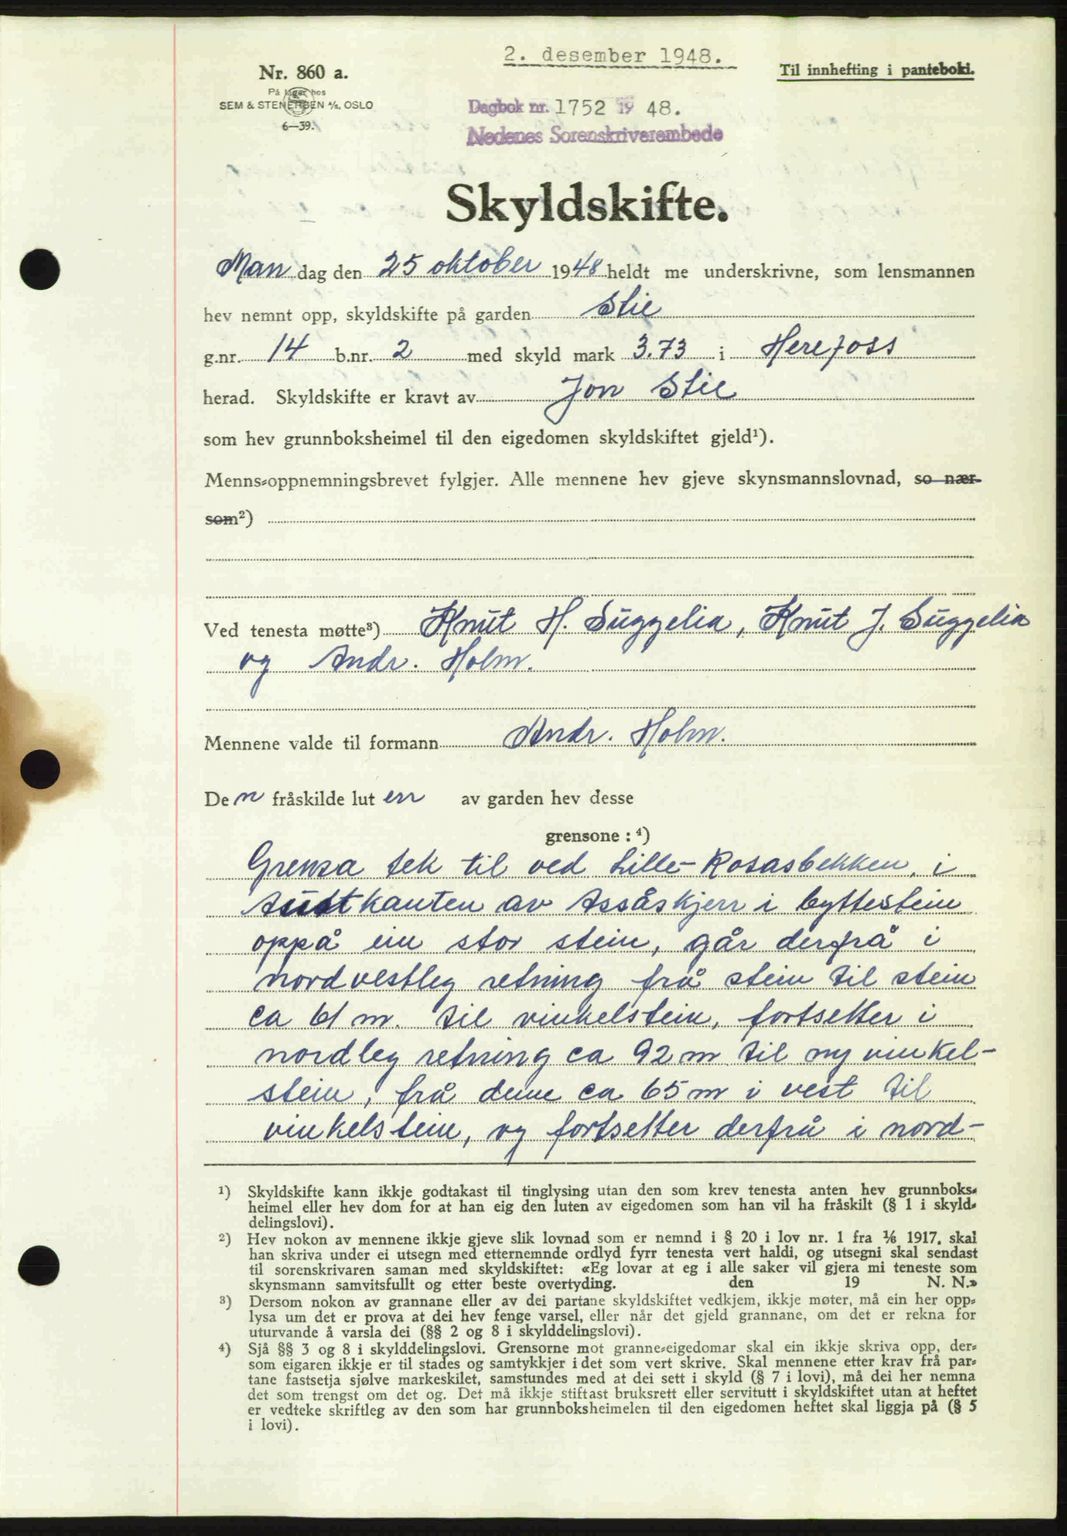 2. desember 1948.
Nr. 860 a.
Til innhefting i panteboki.
På lager hos
SEM & STENERSEN A/S, OSLO
6—39.
Dagbok nr. 1752 19 48.
Nedenes Sorenskriverembede
Skyldskifte.
Man dag den 25 oktober 1948 heldt me underskrivne, som lensmannen
hev nemnt opp, skyldskifte på garden Stie
g.nr. 14 b.nr. 2 med skyld mark 3.73 i Herefoss
herad. Skyldskifte er kravt av Jon Stie
som hev grunnboksheimel til den eigedomen skyldskiftet gjeld¹).
Menns-oppnemningsbrevet fylgjer. Alle mennene hev gjeve skynsmannslovnad, so nær-
som²)
Ved tenesta møtte³) Knut H. Suggelia, Knut J. Suggelia
og Andr. Holm.
Mennene valde til formann Andr. Holm.
De n fråskilde lut en av garden hev desse
grensone : ⁴)
Grensa tek til ved Lille-Rosasbekken, i
Austkanten av Assåskjerr i byttestein
oppå ein stor stein, går derfrå i
nordvestleg retning frå stein til stein
ca 61 m. til vinkelstein, fortsetter i
nordleg retning ca 92 m til ny vinkel-
stein, frå denne ca 65 m i vest til
vinkelstein, og fortsetter derfrå i nord-
¹) Skyldskifte kann ikkje godtakast til tinglysing utan den som krev tenesta anten hev grunnboks-
heimel eller hev dom for at han eig den luten av eigedomen som han vil ha fråskilt (§ 1 i skyld-
delingslovi).
²) Hev nokon av mennene ikkje gjeve slik lovnad som er nemnd i § 20 i lov nr. 1 fra 1/6 1917, skal
han skriva under ei utsegn med etternemnde ordlyd fyrr tenesta vert haldi, og utsegni skal sendast
til sorenskrivaren saman med skyldskiftet: «Eg lovar at eg i alle saker vil gjera mi teneste som
skynsmann samvitsfullt og etter beste overtyding. den 19 N. N.»
³) Dersom nokon av grannane eller av dei partane skyldskiftet vedkjem, ikkje møter, må ein her opp-
lysa um det er prova at dei hev fenge varsel, eller når det gjeld grannane, om det er rekna for
uturvande å varsla dei (§§ 2 og 8 i skylddelingslovi).
⁴) Sjå §§ 3 og 8 i skylddelingslovi. Grensorne mot granne-eigedomar skal ein ikkje skriva opp, der-
som eigaren ikkje er til stades og samtykkjer i det som vert skrive. Skal mennene etter krav frå par-
tane fastsetja sjølve markeskilet, samstundes med at dei sett i skyld (§ 7 i lovi), må dei her nemna
det som trengst om det og. Det må ikkje stiftast bruksrett eller servitutt i skyldskiftet utan at heftet
er vedteke skriftleg av den som har grunnboksheimelen til den eigedomen heftet skal liggja på (§ 5
i lovi).